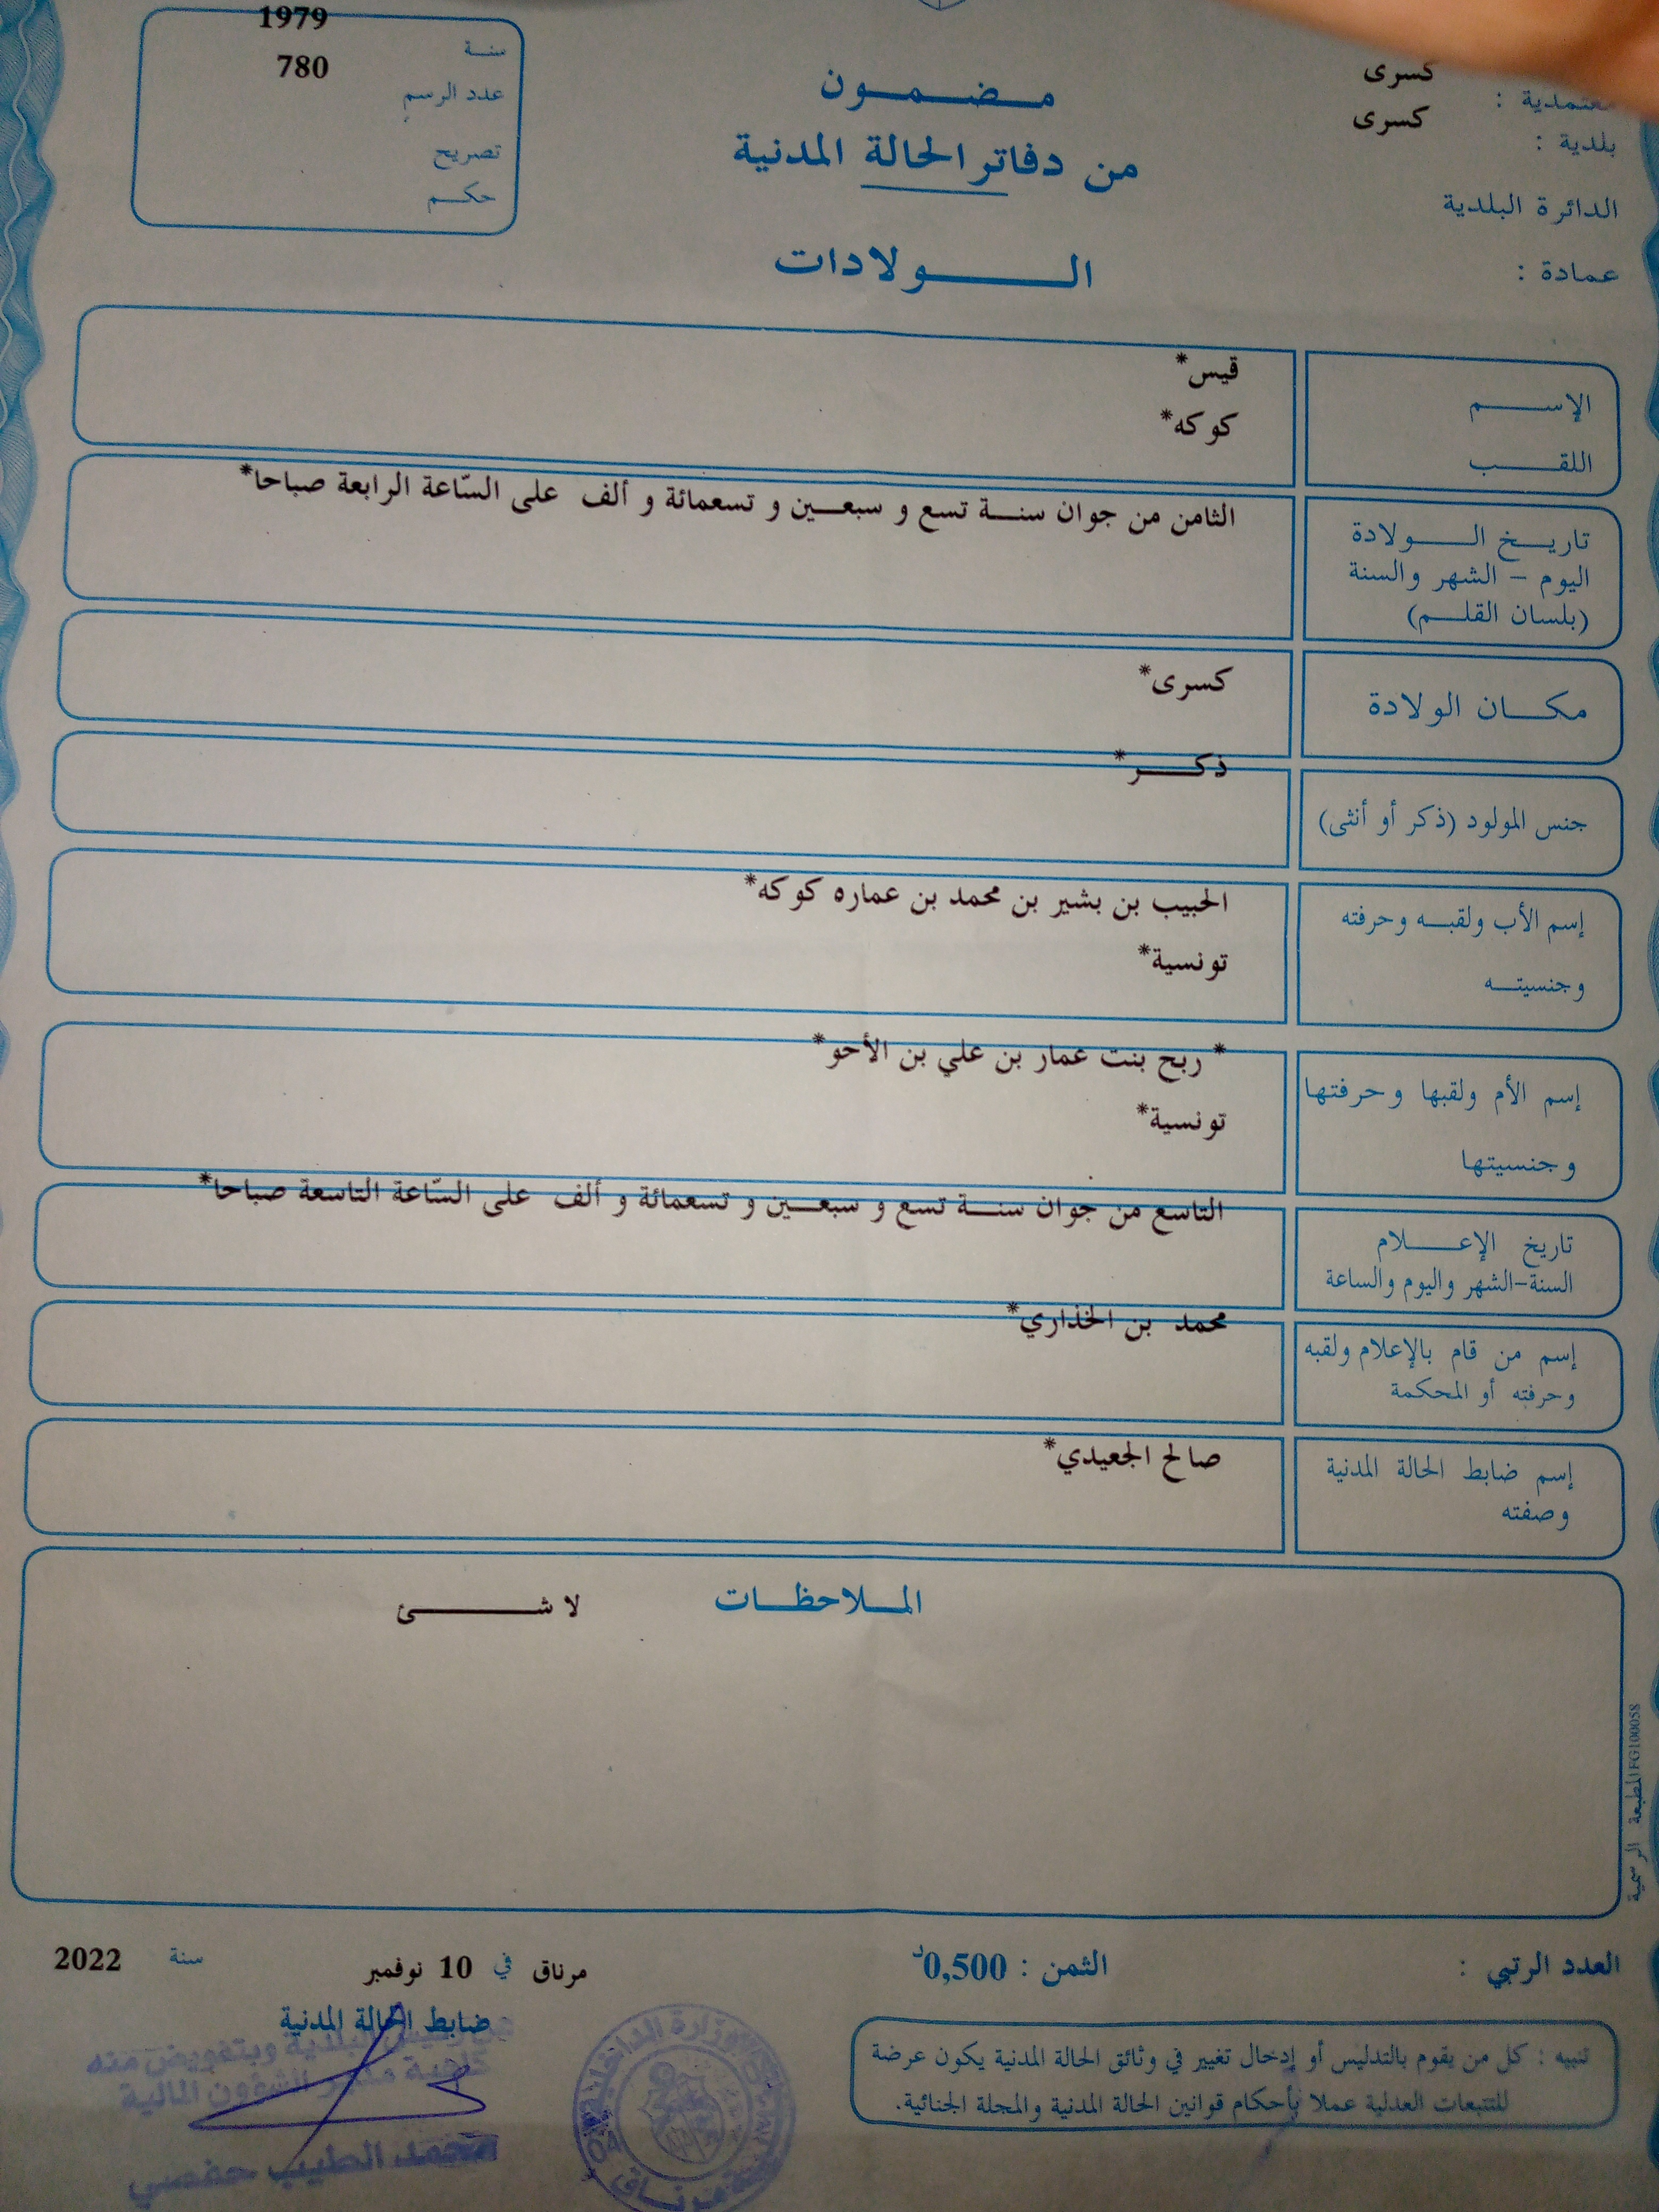 كسرى
معتمدية :
كسرى
بلدية :
الدائرة البلدية
عمادة :
مضمون
من دفاتر الحالة المدنية
الولادات
1979
سنة
780
عدد الرسم
تصريح
حكم
الإسم
قيس*
اللقب
كوكه*
تاريخ الولادة
اليوم - الشهر والسنة
(بلسان القلم)
الثامن من جوان سنة تسع و سبعين و تسعمائة و ألف على السّاعة الرابعة صباحا*
مكان الولادة
كسرى*
جنس المولود (ذكر أو أنثى)
ذكر*
إسم الأب ولقبه وحرفته
الحبيب بن بشير بن محمد بن عماره كوكه*
وجنسيته
تونسية*
إسم الأم ولقبها وحرفتها
* ربح بنت عمار بن علي بن الأحو*
وجنسيتها
تونسية*
تاريخ الإعلام
السنة-الشهر واليوم والساعة
التاسع من جوان سنة تسع و سبعين و تسعمائة و ألف على السّاعة التاسعة صباحا*
إسم من قام بالإعلام ولقبه
وحرفته أو المحكمة
محمد بن الخذاري*
إسم ضابط الحالة المدنية
وصفته
صالح الجعيدي*
الملاحظات
لا شئ
المطبعة الرسمية FG100058
العدد الرتبي :
الثمن : 0,500د
مرناق في 10 نوفمبر سنة 2022
ضابط الحالة المدنية
رئيس البلدية وبتفويض منه
كاهية مدير الشؤون المالية
محمد الطيب حفصي
وزارة الداخلية
مرناق
تنبيه : كل من يقوم بالتدليس أو إدخال تغيير في وثائق الحالة المدنية يكون عرضة
للتتبعات العدلية عملا بأحكام قوانين الحالة المدنية والمجلة الجنائية.